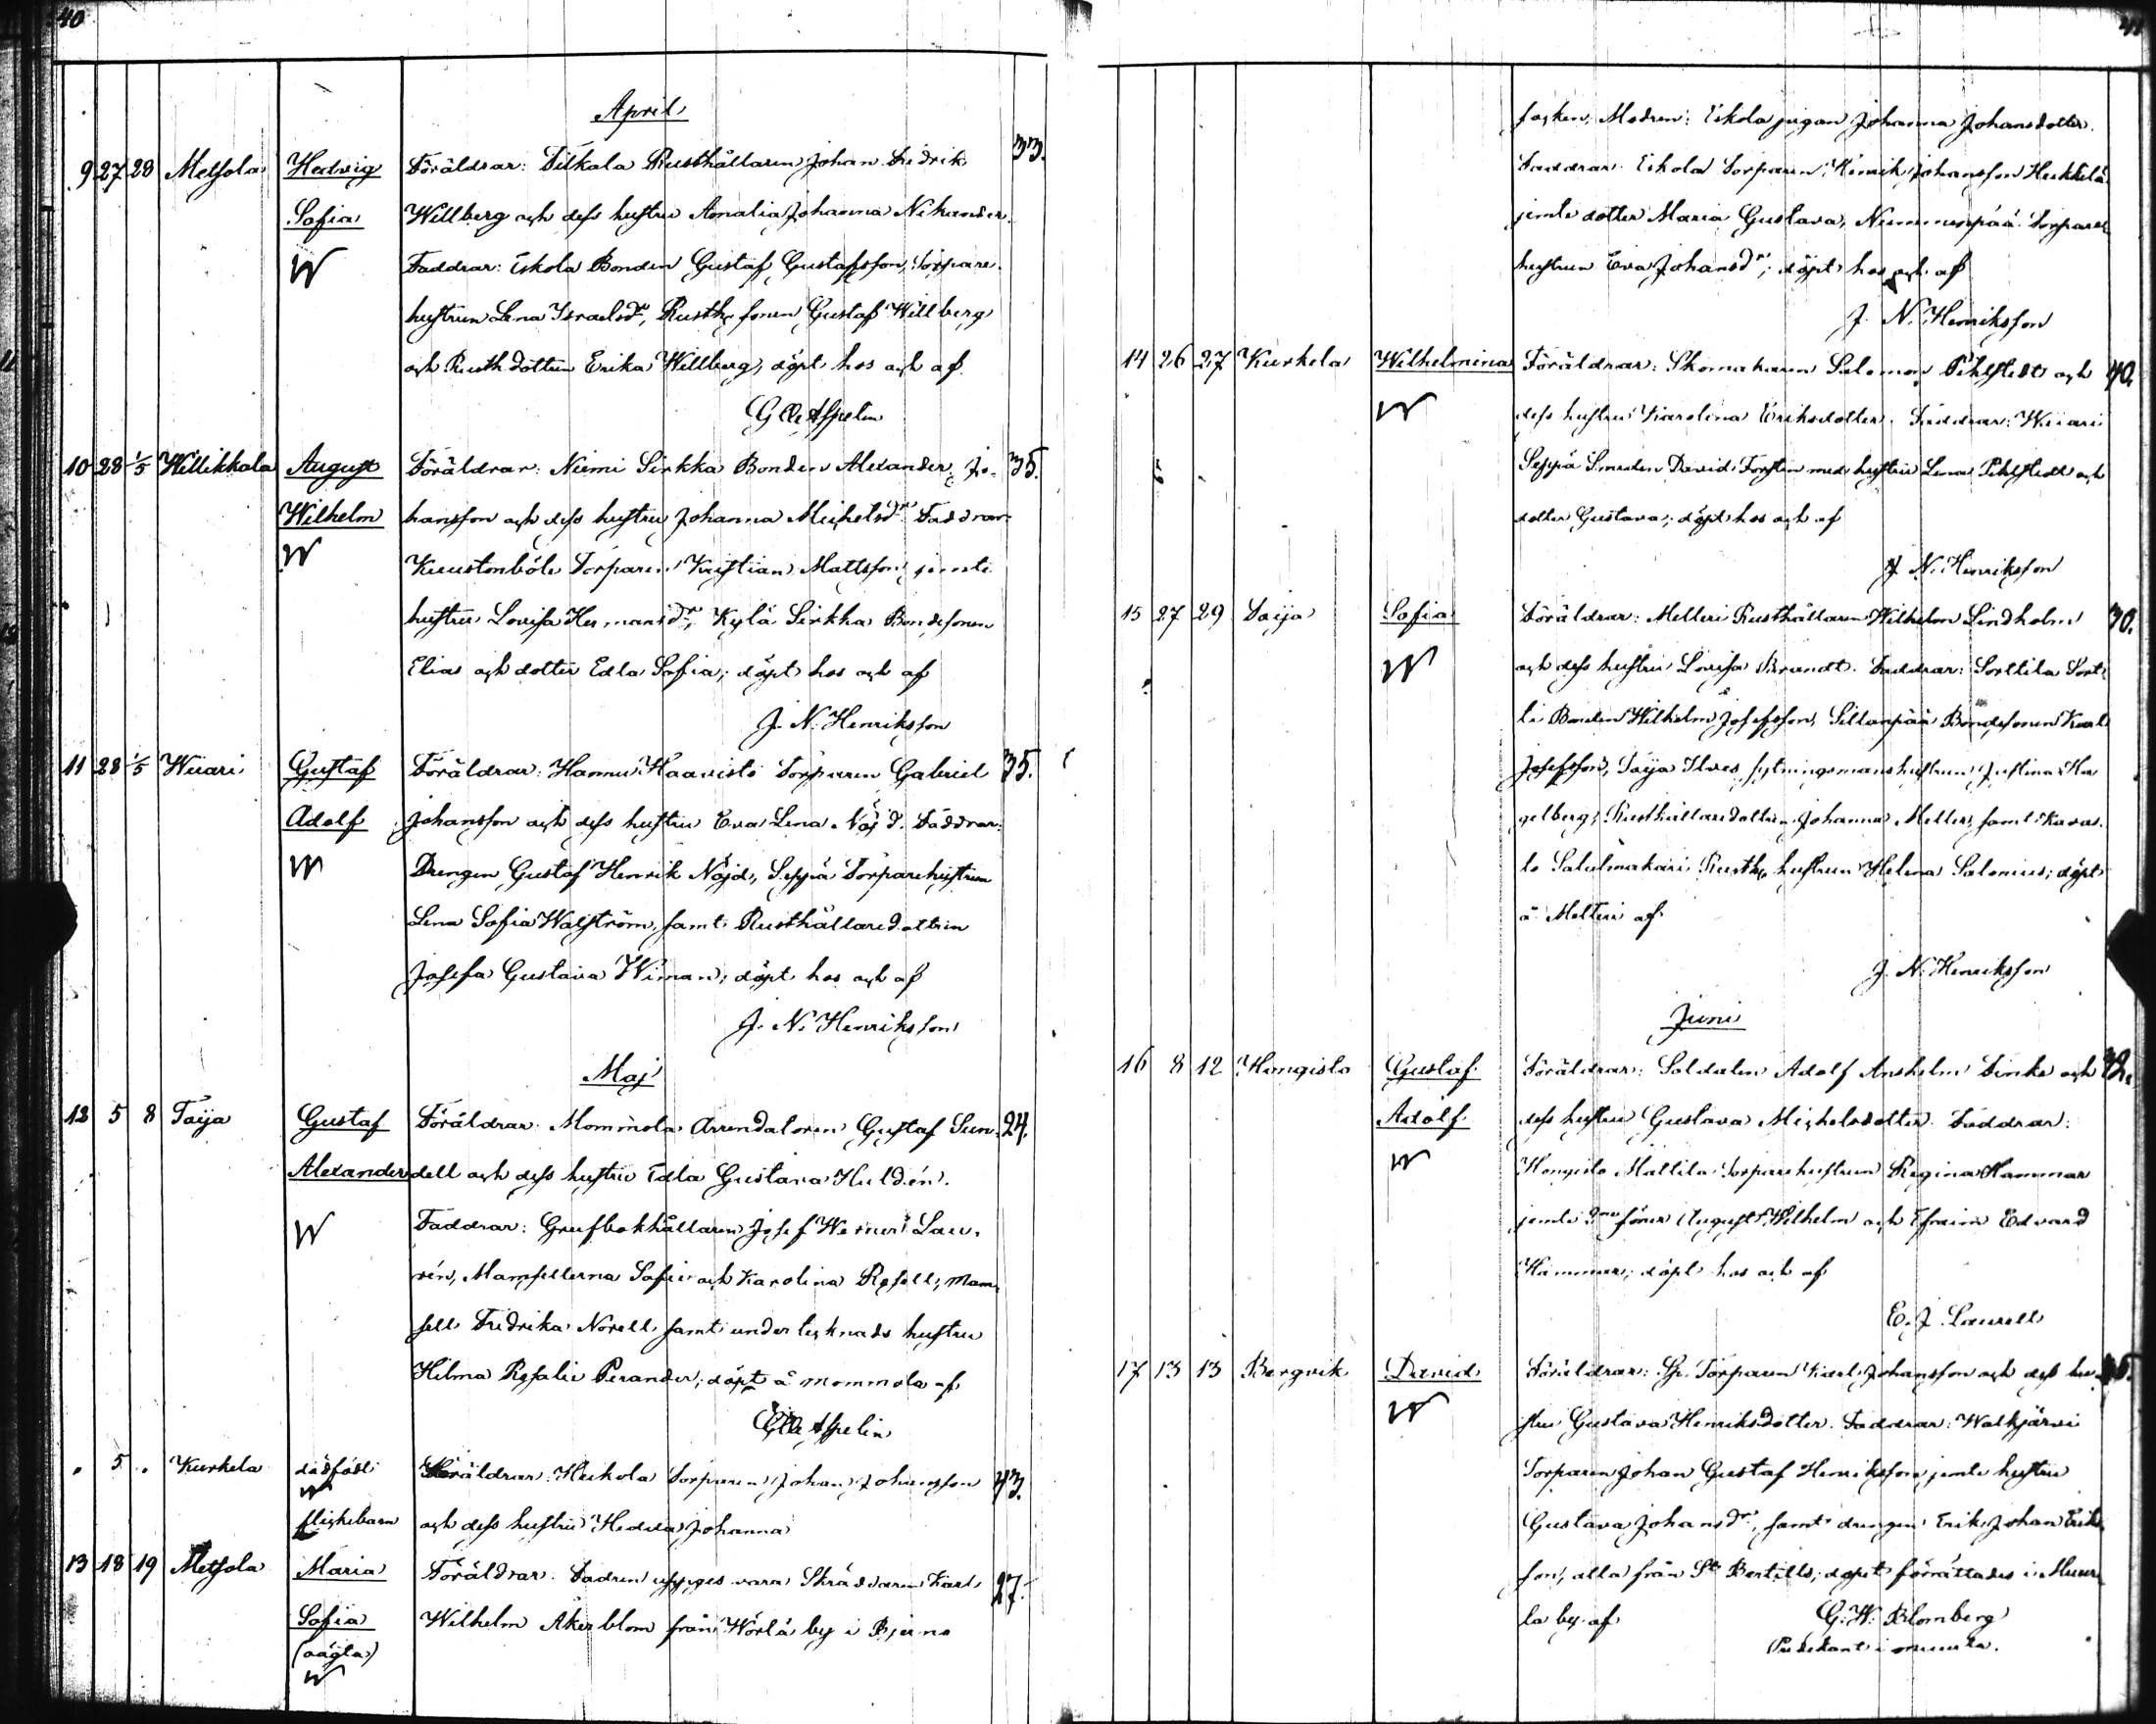 40
April
9 27 28 Metsola Hedwig Föräldrar: Tilkala Rusthållaren Johan Fredrik 33.
Sofia Willberg och dess hustru Amalia Johanna Nikander.
W Faddrar: Eskola Bonden Gustaf Gustafsson, Torpare-
hustrun Lena Israelsdr, Rusth. sonen Gustaf Willberg
och Rusth dottren Erika Willberg, döpt hos och af
Aspelin
10 28 1/5 Willikkala August Föräldrar: Niemi Sirkka Bonden Alexander Jo- 35.
Wilhelm hansson och dess hustru Johanna Michelsdr. Faddrar
W Kuustonböle Torparen Kristian Mattsson jemte
hustru Lovisa Hermansdr, Kylä Sirkka Bondesonen
Elias och dotter Edla Sofia; döpt hos och af
J. N. Henriksson
11 28 1/5 Wiiari Gustaf Föräldrar: Hannus Haavisto Torparen Gabriel 35.
Adolf Johansson och dess hustru Eva Lena Nöjd. Faddrar:
W Drengen Gustaf Henrik Nöjd, Seppä Torparehustrun
Lena Sofia Walström, samt Rusthållaredottren
Josefa Gustava Wiman; döpt hos och af
J. N. Henriksson
Maj
12 5 8 Taija Gustaf Föräldrar: Mommola Arrendatoren Gustaf Sun- 24.
Alexander dell och dess hustru Edla Gustava Huldén.
W Faddrar: Grufbokhållaren Josef Werner Lau-
rén, Mamsellerna Sofie och Karolina Rosell, Mam-
sell Fredrika Norell samt undertecknads hustru
Hilma Rosalie Perander; döpt å Mommola af
Aspelin
. 5 . Kurkela dödfödt Föräldrar: Heikola Torparen Johan Johansson 43.
W
flickebarn och dess hustru Hedda Johanna
13 18 19 Metsola Maria Föräldrar: Fadren uppges vara Skräddaren Karl 27.
Sofia Wilhelm Åkerblom från Wörlä by i Bjerno
(oägta)
W
41
socken, Modren: Eskola pigan Johanna Johansdotter.
Faddrar: Eskola Torparen Henrik Johansson Heikkilä
jemte dotter Maria Gustava, Niemenpää Torpare
hustrun Eva Johansdr; döpt hos och af
J. N. Henriksson
14 26 27 Kurkela Wilhelmina Föräldrar: Skomakaren Salomon Pihlstedt och 40.
W dess hustru Karolina Eriksdotter. Faddrar: Wiiari
Seppä Smeden David Forsten med hustru Lena Pihlstedt och
dotter Gustava; döpt hos och af
J. N. Henriksson
15 27 29 Taija Sofia Föräldrar: Melleri Rusthållaren Wilhelm Lindholm 30.
W och dess hustru Lovisa Brandt. Faddrar: Torttila Tort-
li Bonden Wilhelm Josefsson, Sillanpää Bondesonen Karl
Josefsson, Taija Ilves sytningsmanshustrun Justina Ha
gelberg, Rusthållaredottren Johanna Melleri samt Karva-
la Satulmakari Rusth hustrun Helena Salenius; döpt
å Melleri af
J. N. Henriksson
Juni
16 8 12 Hongisto Gustaf Föräldrar: Soldaten Adolf Anshelm Sinko och 32.
Adolf dess hustru Gustava Michelsdotter. Faddrar:
W Hongisto Mattila Torparehustrun Regina Hammar
jemte dess söner August Wilhelm och Efraim Edvard
Hammar; döpt hos och af
E. J. Laurell
17 13 13 Bergvik David Föräldrar: Torparen Karl Johansson och dess hu-
W stru Gustava Henriksdotter. Faddrar: Walkjärvi
Torparen Johan Gustaf Henriksson jemte hustru
Gustava Johansdr, samt drengen Erik Johan Eriks-
son, alla från St Bertils; dopet förrättades i Muur
la by af G. W. Blomberg
Predikant i Muurla.